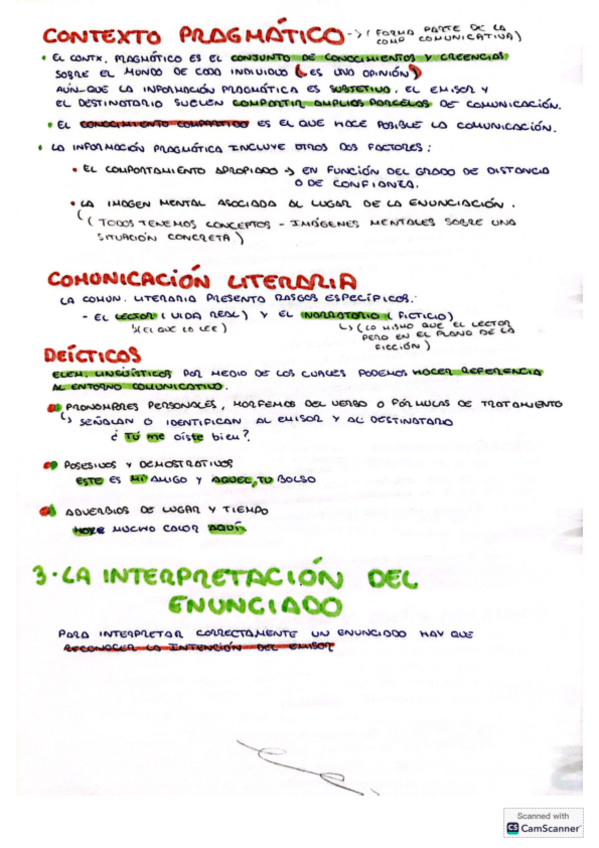 CONTEXTO PRAGMÁTICO -> (FORMA PARTE DE LA
COMO COMUNICATIVA)
• EL CONTX. PRAGMÁTICO ES EL CONJUNTO DE CONOCIMIENTOS Y CREENCIAS
SOBRE EL MUNDO DE CADA INDIVIDUO (ES UNA OPINIÓN)
AUN-QUE LA INFORMACIÓN PRAGMÁTICA ES SUBJETIVO, EL EMISOR Y
EL DESTINATARIO SUELEN COMPARTIR AMPLIAS PARCELAS DE COMUNICACIÓN.
• EL CONOCIMIENTO COMPARTIDO ES EL QUE HACE POSIBLE LA COMUNICACIÓN.
• LA INFORMACIÓN PRAGMÁTICA INCLUYE OTROS DOS FACTORES:
• EL COMPORTAMIENTO APROPIADO -> EN FUNCIÓN DEL GRADO DE DISTANCIA
O DE CONFIANZA.
• LA IMAGEN MENTAL ASOCIADA AL LUGAR DE LA ENUNCIACIÓN.
(TODOS TENEMOS CONCEPTOS - IMÁGENES MENTALES SOBRE UNA
SITUACIÓN CONCRETA)
COMUNICACIÓN LITERARIA
LA COMUN. LITERARIA PRESENTA RASGOS ESPECÍFICOS:
- EL LECTOR (VIDA REAL) Y EL NARRATARIO (FICTICIO)
(EL QUE LO LEE) (LO MISMO QUE EL LECTOR
PERO EN EL PLANO DE LA
FICCIÓN)
DEÍCTICOS
ELEM. LINGÜÍSTICOS POR MEDIO DE LOS CUALES PODEMOS HACER REFERENCIA
AL ENTORNO COMUNICATIVO.
PRONOMBRES PERSONALES, MORFEMAS DEL VERBO O FÓRMULAS DE TRATAMIENTO
SEÑALAN O IDENTIFICAN AL EMISOR Y AL DESTINATARIO
¿Tú me oíste bien?
POSESIVOS Y DEMOSTRATIVOS
ESTE ES MI AMIGO Y AQUEL, TU BOLSO
ADVERBIOS DE LUGAR Y TIEMPO
HACE MUCHO CALOR AQUÍ
3. LA INTERPRETACIÓN DEL
ENUNCIADO
PARA INTERPRETAR CORRECTAMENTE UN ENUNCIADO HAY QUE
RECONOCER LA INTENCIÓN DEL EMISOR
Scanned with
CS CamScanner